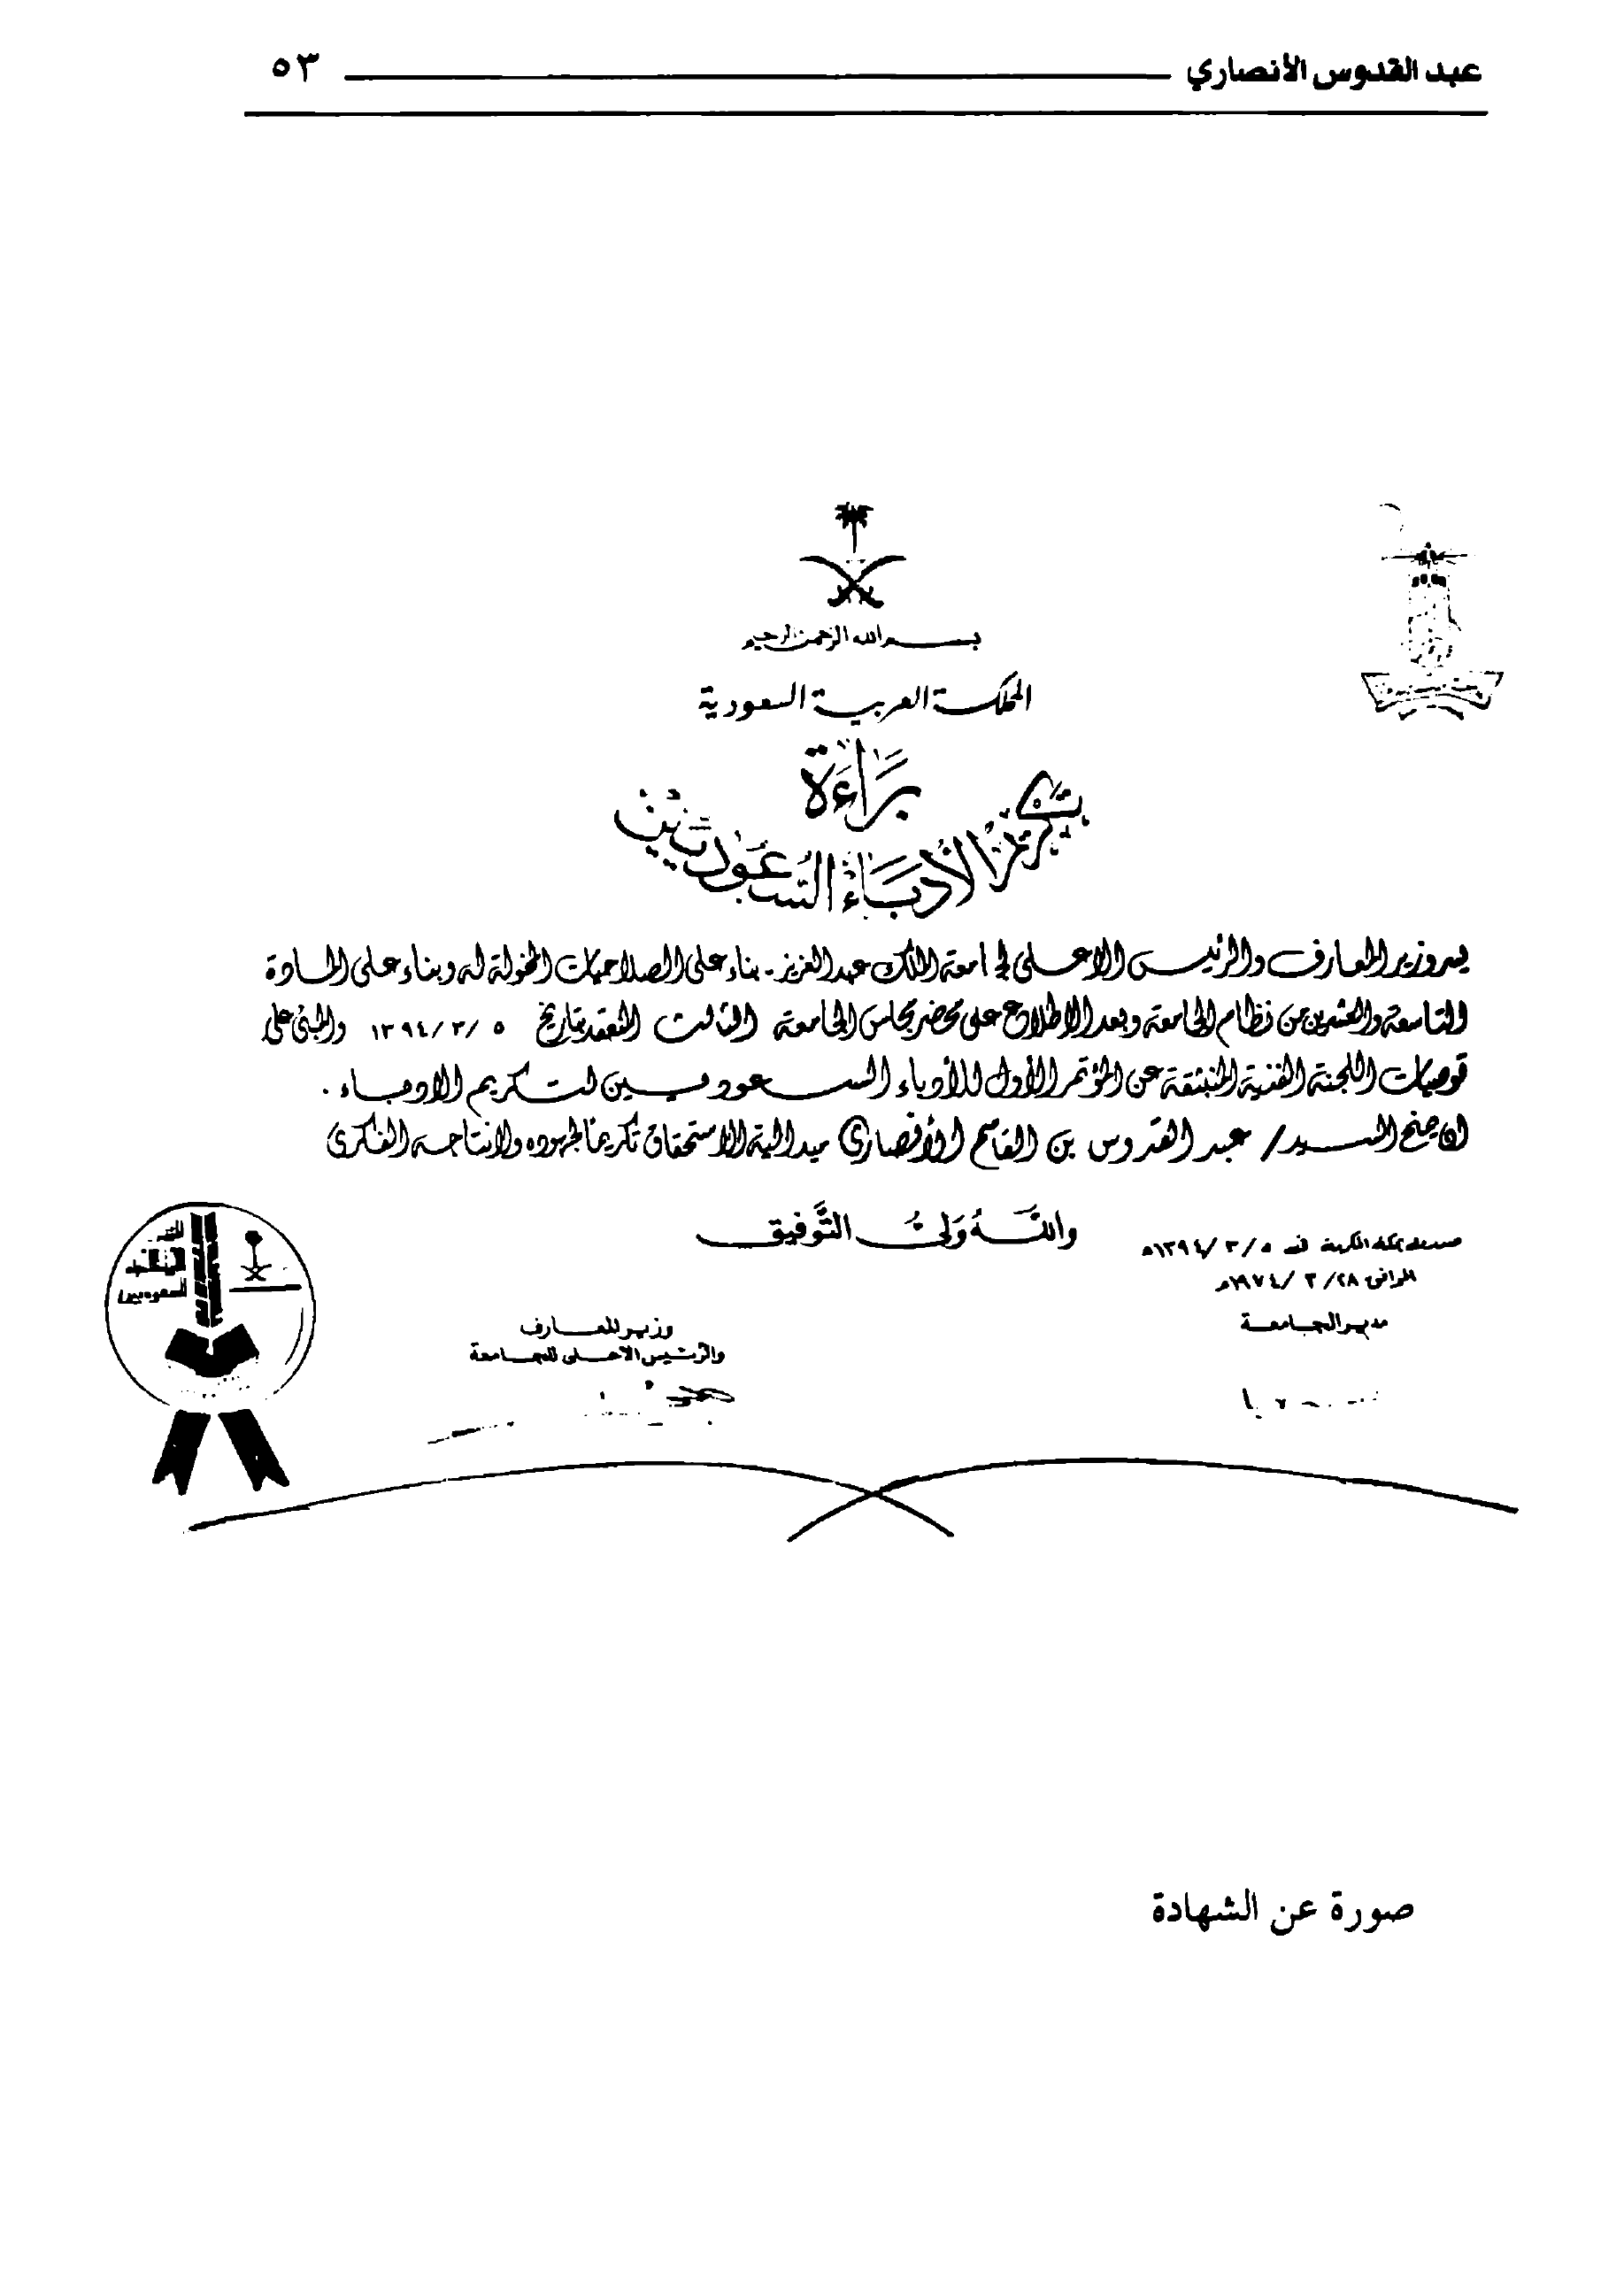 عبد القدوس الأنصاري ٥٣
بسم الله الرحمن الرحيم
المملكة العربية السعودية
براءة
تكريم الأدباء السعوديين
يسر وزير المعارف والرئيس الاعلى لجامعة الملك عبد العزيز - بناء على الصلاحيات المخولة له وبناء على المادة
التاسعة والعشرين من نظام الجامعة وبعد الاطلاع على محضر مجلس الجامعة الثالث المنعقد بتاريخ ٥ /٣ /١٣٩٤ والمبنى على
توصيات اللجنة الفنية المنبثقة عن المؤتمر الأول للأدباء السعوديين لتكريم الادباء .
ان يمنح السيد / عبد القدوس بن القاسم الأنصاري ميدالية الاستحقاق تكريما لجهوده ولانتاجه الفكرى
والله ولي التوفيق
بمكة المكرمة في ٥ /٣ /١٣٩٤هـ
الموافق ٢٨ /٣ /١٩٧٤م
مدير الجامعة
وزير المعارف
والرئيس الاعلى للجامعة
السعوديين
صورة عن الشهادة